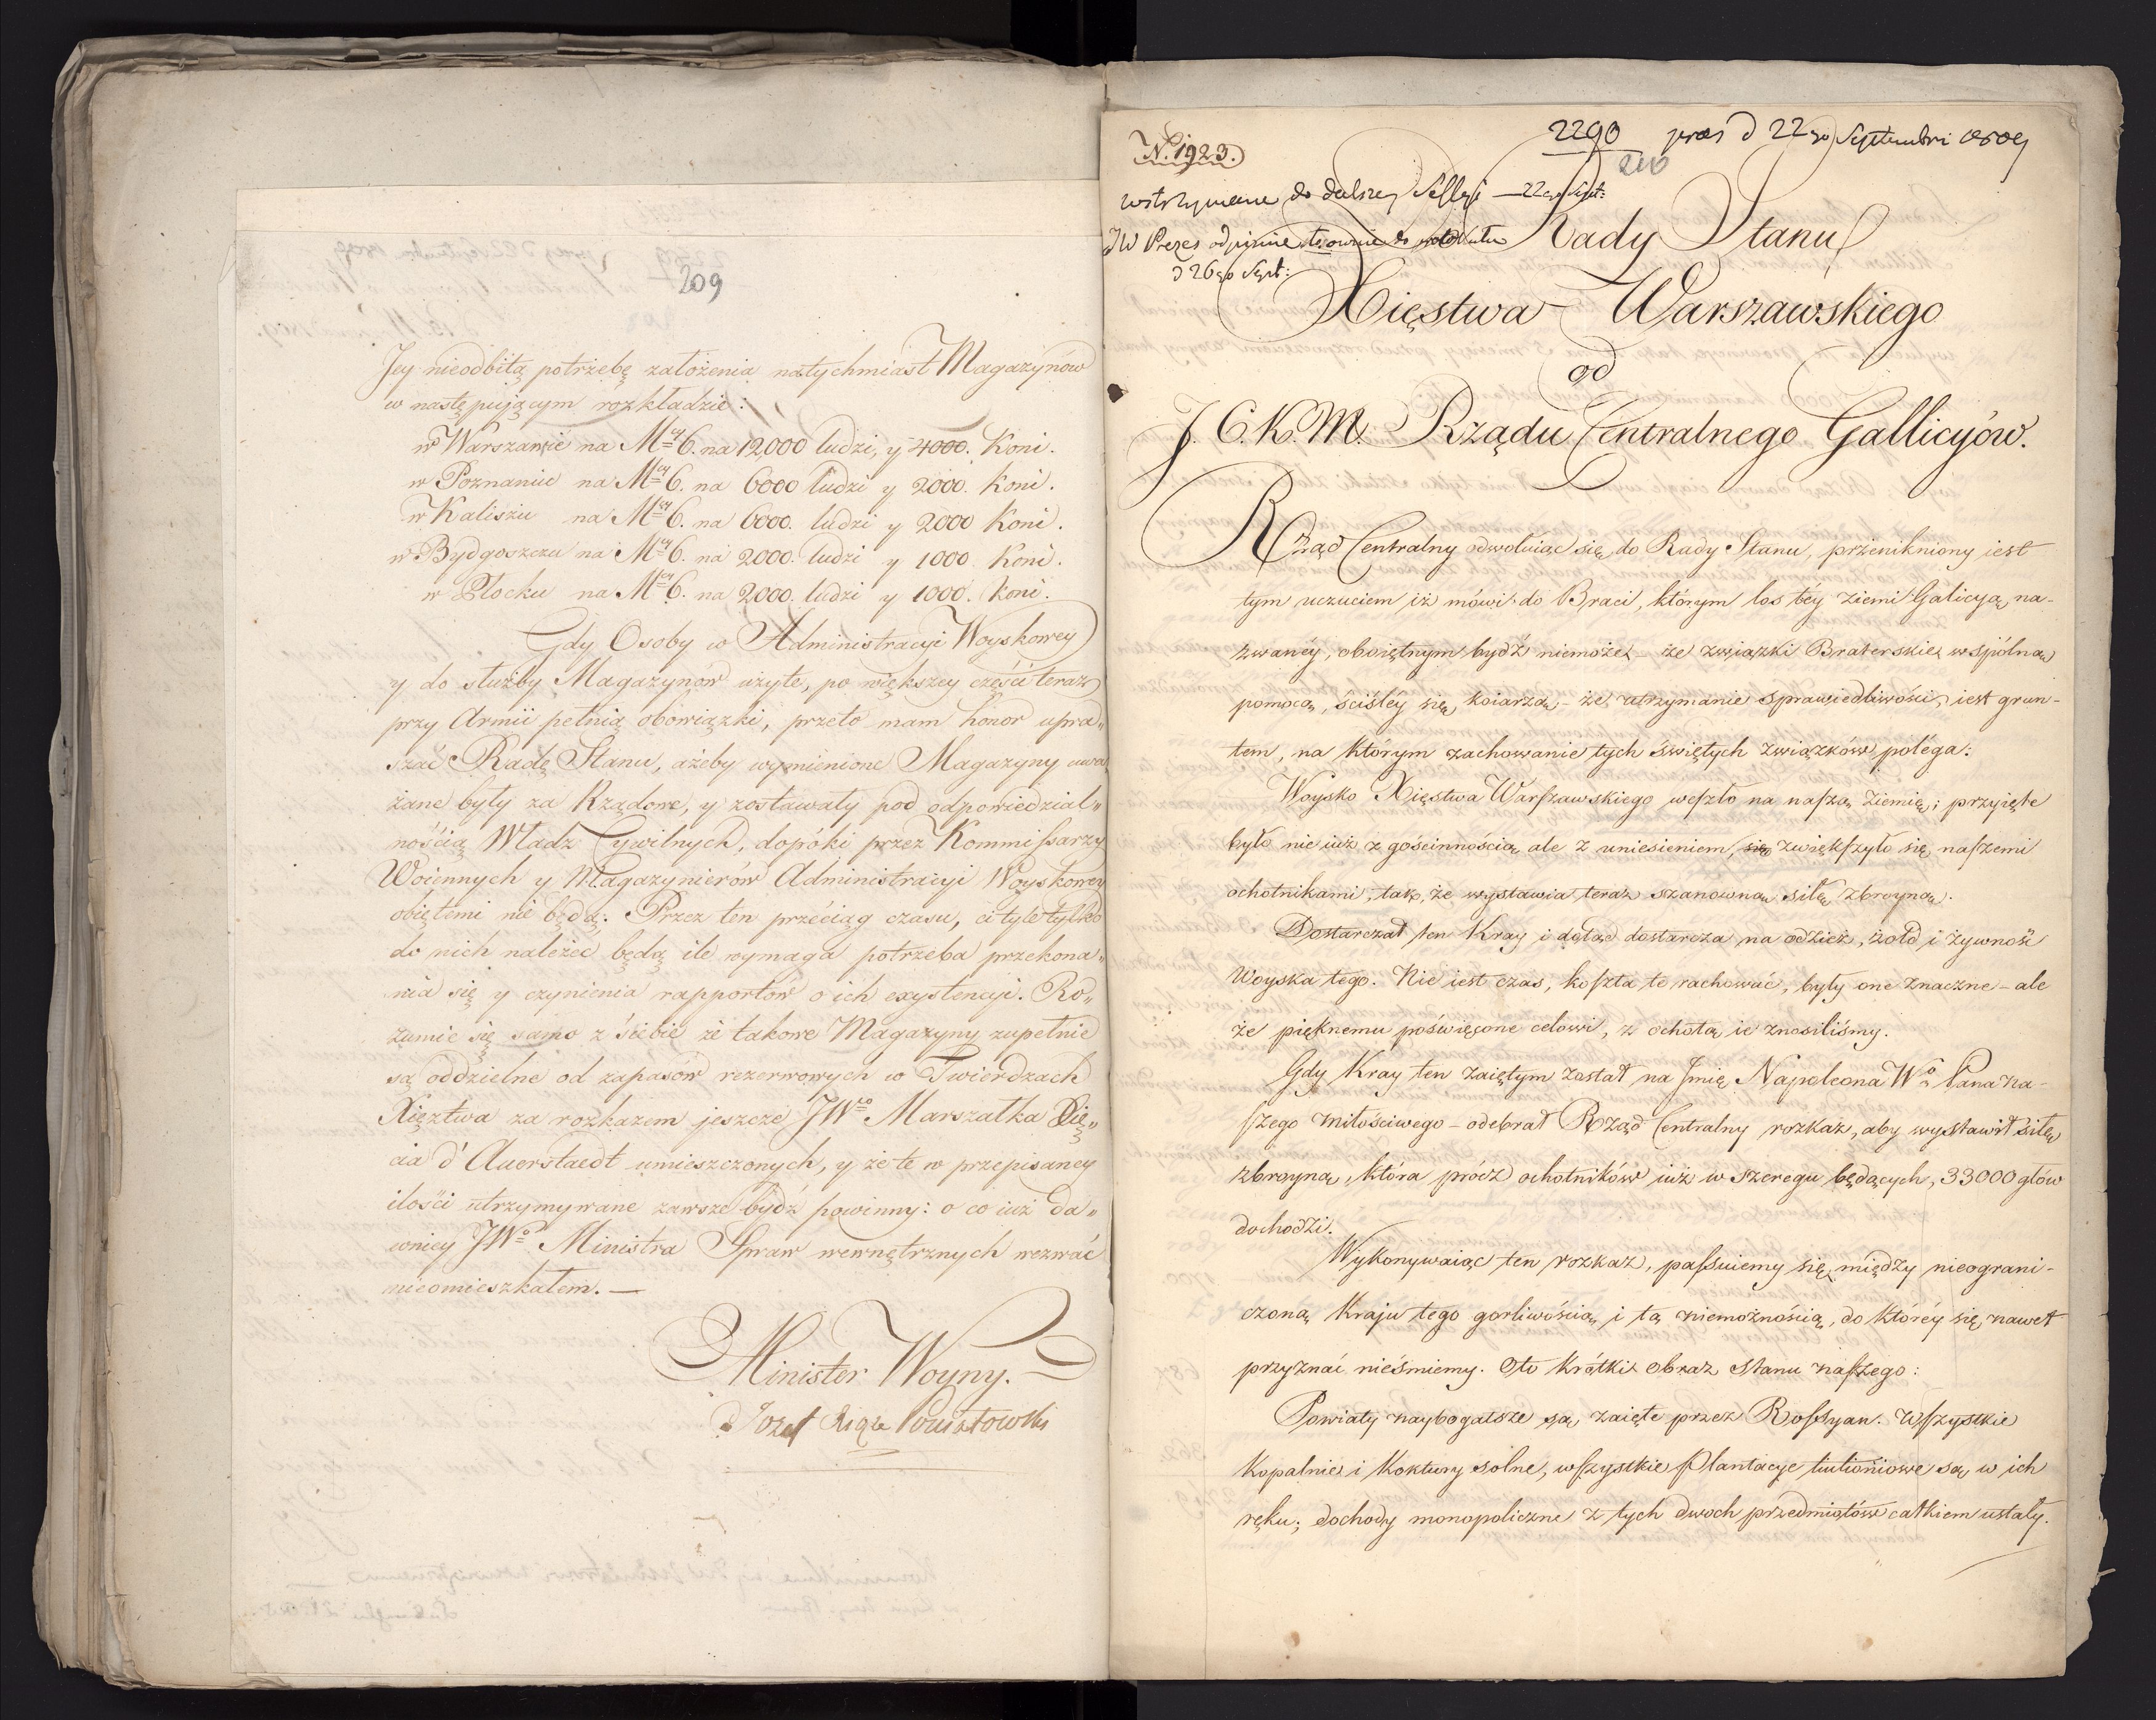 209
Jey nieodbitą potrzebę założenia natychmiast Magazynów
w następującym rozkładzie:
w Warszawie na M<sup>cy</sup> 6. na 12,000 ludzi, y 4000. Koni.
w Poznaniu na M<sup>cy</sup> 6. na 6000 ludzi y 2000. Koni.
w Kaliszu na M<sup>cy</sup> 6. na 6000. ludzi y 2000 Koni.
w Bydgoszczu na M<sup>cy</sup> 6. na 2000. ludzi y 1000 Koni.
w Płocku na M<sup>cy</sup> 6. na 2000. ludzi y 1000. Koni.
Gdy Osoby w Administracyi Woyskowey
y do służby Magazynow użyte, po większey części teraz
przy Armii pełnią obowiązki, przeto mam honor upra„
szać Radę Stanu, ażeby wymienione Magazyny uwa
żane były za Rządowe, y zostawały pod odpowiedzial„
nością Władz Cywilnych, dopóki przez Kommissarzy
Woiennych y Magazynierów Administracyi Woyskowey
obiętemi nie będą. Przez ten przeciąg czasu, ci tyle tylko
do nich należeć będą ile wymaga potrzeba przekona„
nia się y czynienia rapportow o ich exystencyi. Ro„
zumie się samo z siebie że takowe Magazyny zupełnie
są oddzielne od zapasów rezerwowych w Twierdzach
Xięztwa za rozkazem jeszcze JW<sup>o</sup> Marszałka Xię„
cia d'Auerstaedt umieszczonych, y że te w przepisaney
ilości utrzymywane zawsze bydź powinny: o co iuż da„
wniey JW<sup>o</sup> Ministra Spraw wewnętrznych wezwać
nieomieszkałem. —
Minister Woyny.
Jozef Xiąże Poniatowski
N. 1923.
2290 praes d 22go Septembri 1809
210
wstrzymane do dalszey Sessyi — 22go Sept:
JW Prezes odpisanie do
d 26go Sept:
Rady Stanu
Xięstwa Warszawskiego
od
J. C. K. M. Rządu Centralnego Gallicyów.
Rząd Centralny odwołuiąc się do Rady Stanu, przenikniony iest
tym uczuciem iż mówi do Braci, którym los téy ziemi Galicyą na-
zwanéy, oboiętnym bydź niemoże – że związki Braterskie wspólną
pomocą, ściśléy się koiarzą, – że utrzymanie sprawiedliwości, iest grun-
tem, na którym zachowanie tych świętych związków poléga:
Woysko Xięstwa Warszawskiego weszło na naszą Ziemię; przyięte
było nie iuż z gościnnością ale z uniesieniem, się zwiększyło się naszemi
ochotnikami, tak, że wystawia teraz szanowną siłę zbroyną.
Dostarczał ten Kray i dotąd dostarcza na odzież, żołd i żywność
Woyska tego. Nie iest czas, koszta te rachować, były one znaczne – ale
że pięknemu poświęcone celowi, z ochotą ie znosiliśmy.
Gdy Kray ten zaiętym został na Jmię Napoleona W<sup>o</sup> Pana na-
szego miłościwego – odebrał Rząd Centralny rozkaz, aby wystawił siłę
zbroyną, która prócz ochotników iuż w szeregu będących, 33000 głów
dochodzi.
Wykonywaiąc ten rozkaz, passuiemy się między nieograni-
czoną Kraju tego gorliwością i tą niemożnością, do któréy się nawet
przyznać nieśmiemy. Oto krótki obraz stanu naszego:
Powiaty naybogatsze są zaięte przez Rossyan. Wszystkie
Kopalnie i Koktury solne, wszystkie plantacye tiutioniowe są w ich
ręku; dochody monopoliczne z tych dwoch przedmiotów całkiem ustały.